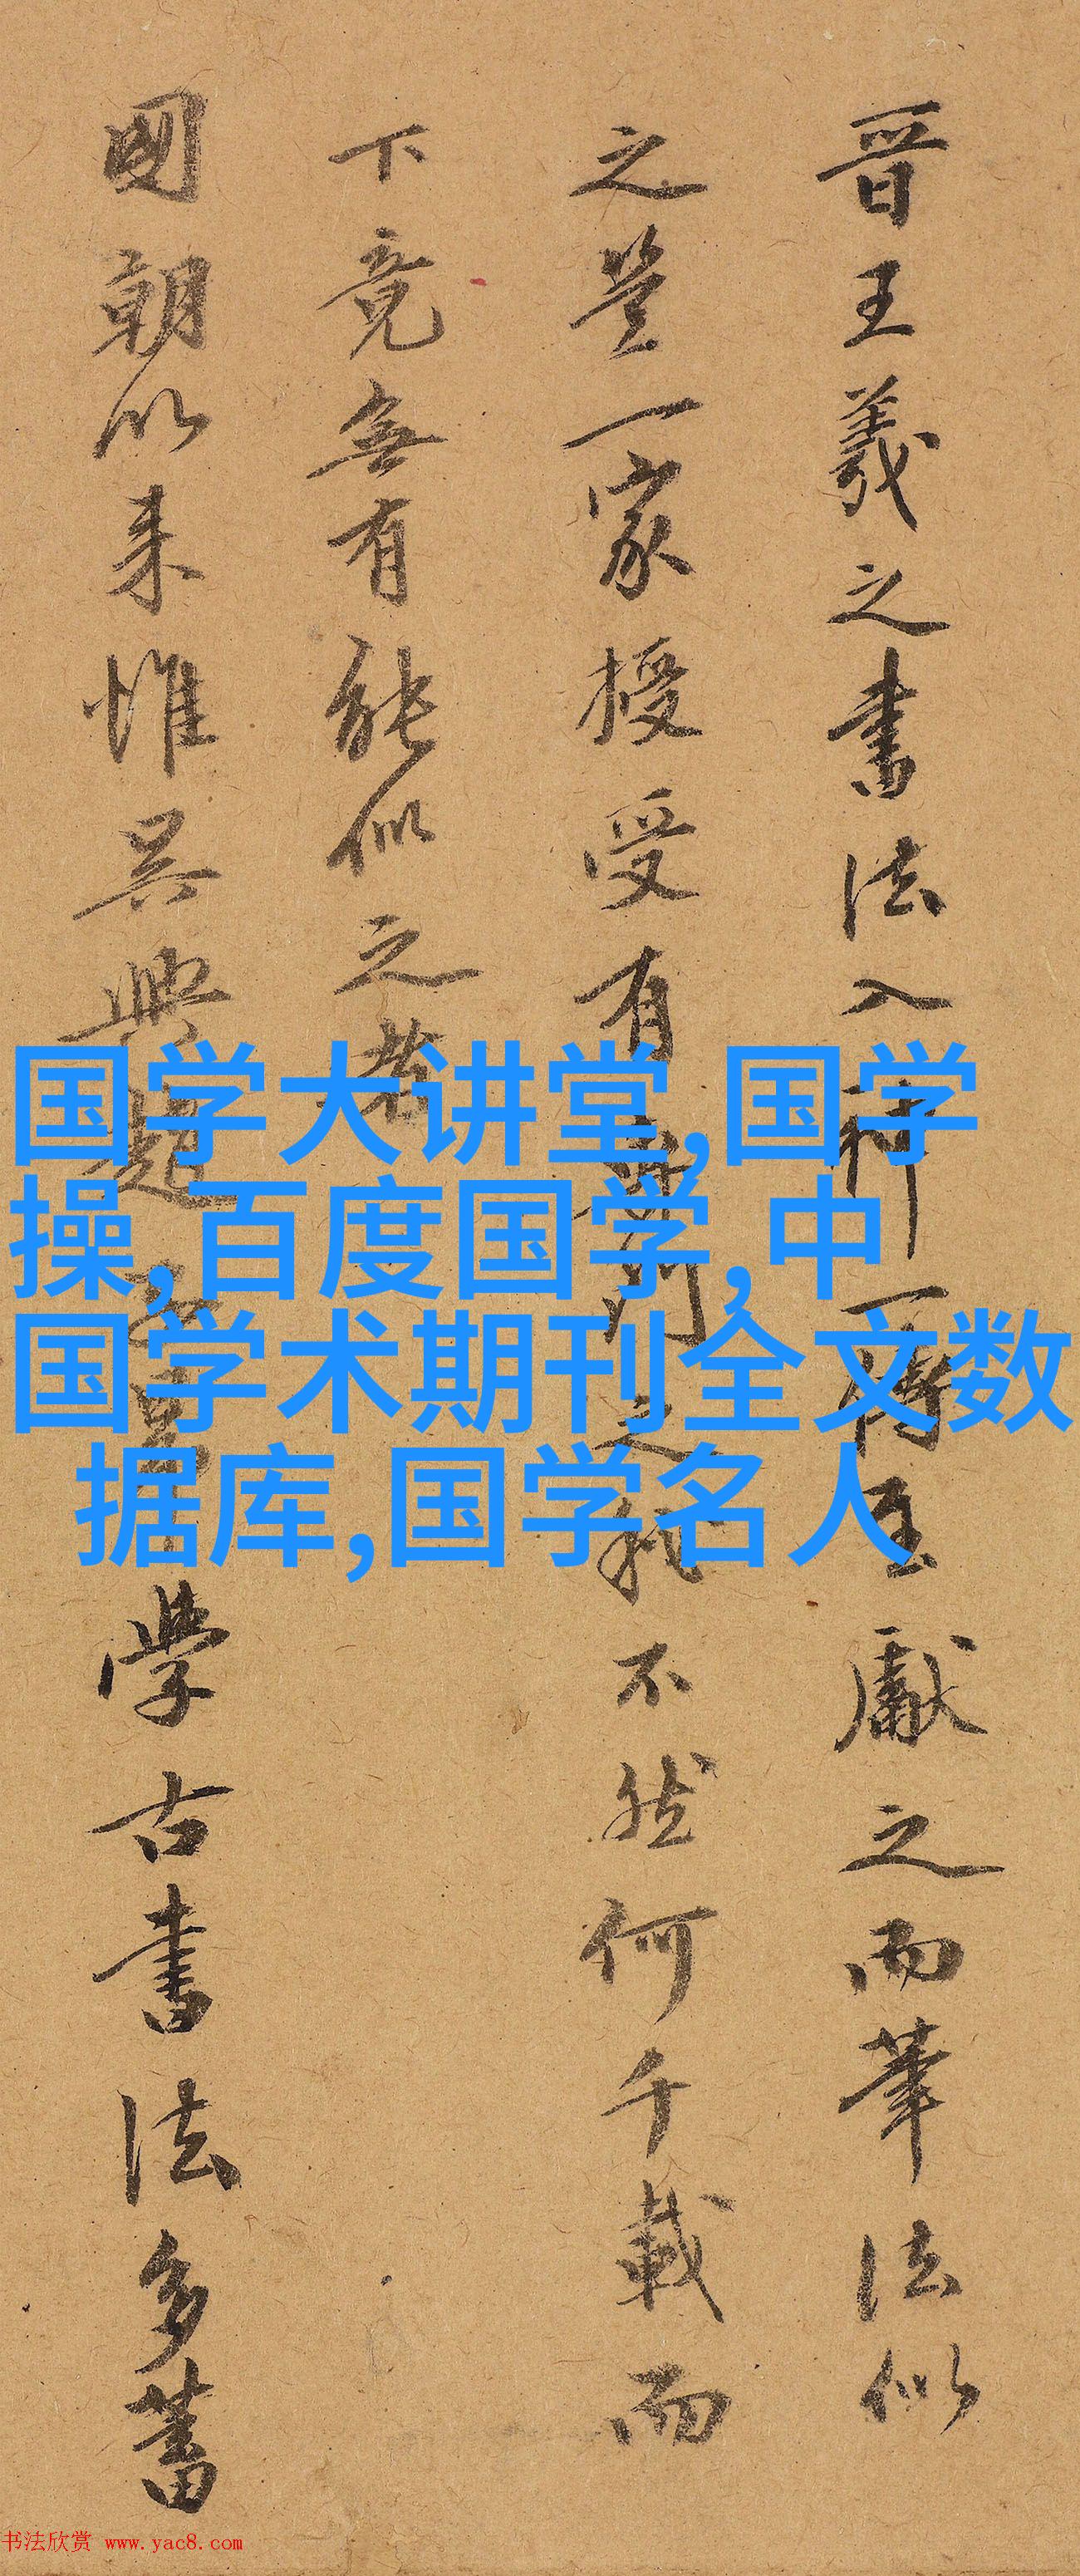 晉王羲之書法入神一傳至獻之而筆法似
之豈一家授受有門之秘不然何千載而
下竟無有能似之者
國朝以来惟吴興趙學古書法多蓄
国学大讲堂,国学
操,百度国学,中
国学术期刊全文数
据库,国学名人
书法欣赏 www.yac8.com